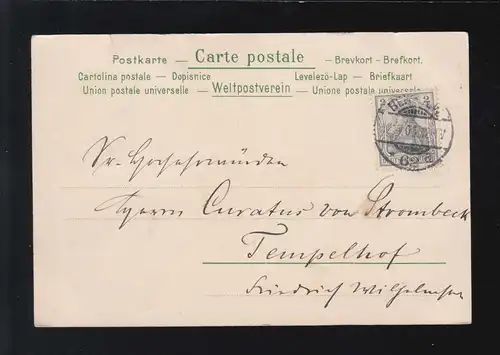 Postkarte — Carte postale — Brevkort - Brefkort.
Cartolina postale — Dopisnice Levelező-Lap — Briefkaart
Union postale universelle — Weltpostverein — Unione postale universale
Sr. Hochehrwürden
Herrn Curatus von Strombeck
Tempelhof
Friedrich Wilhelmstr